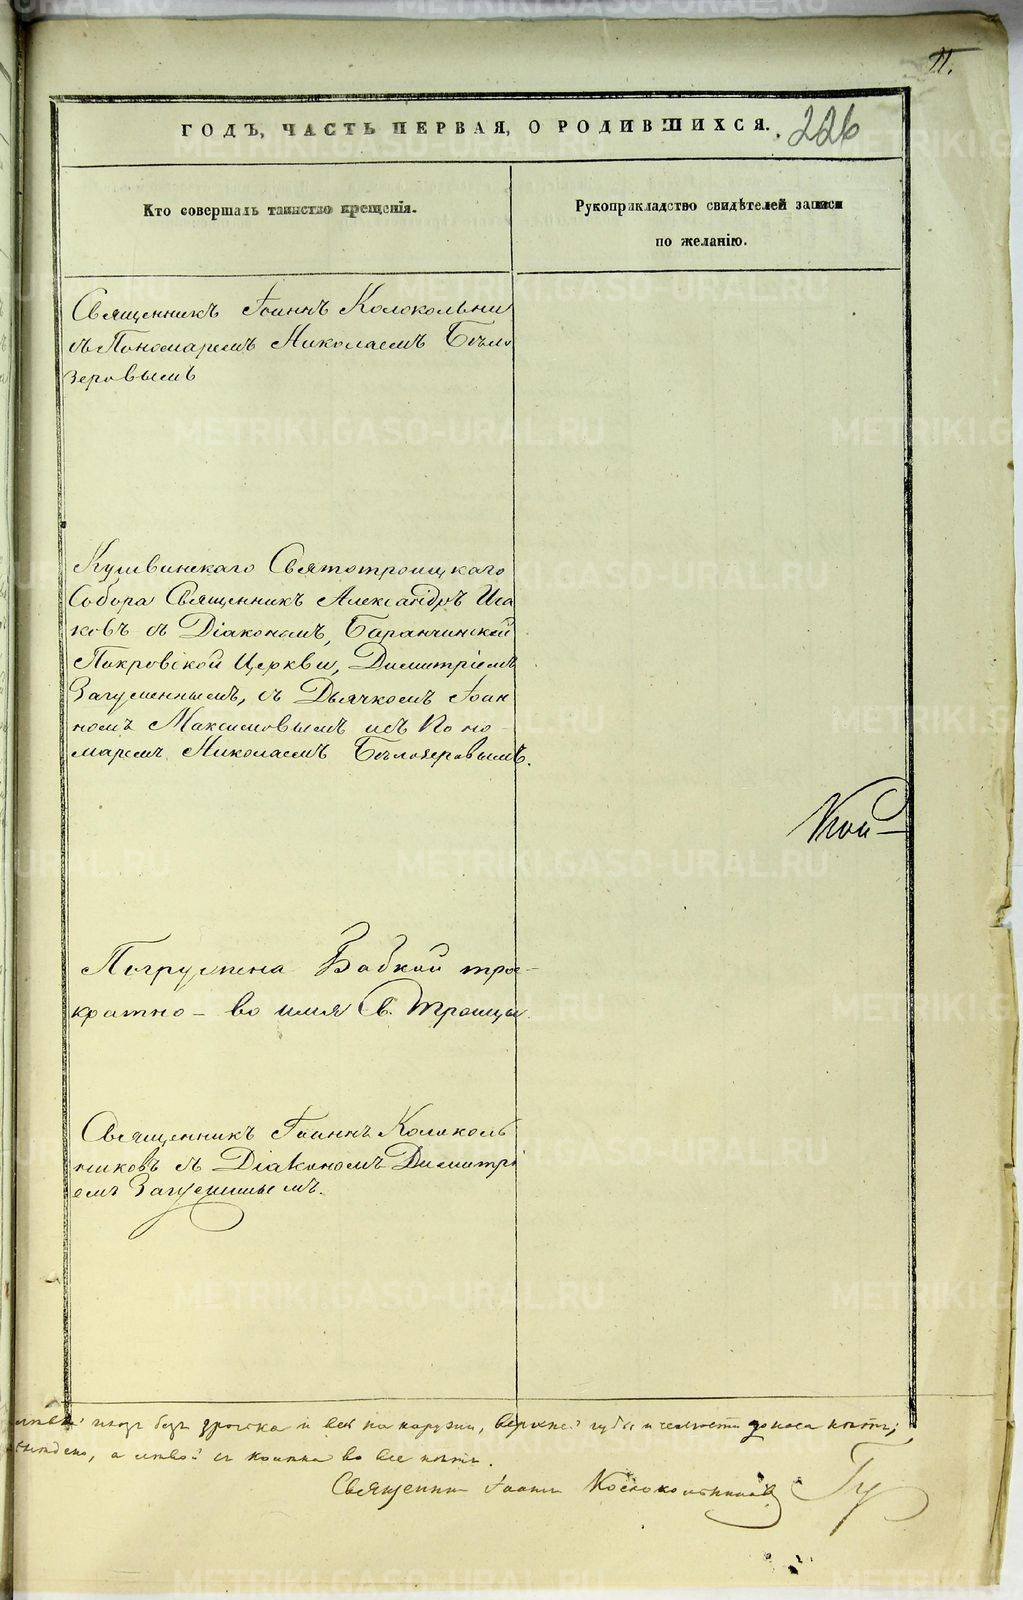 11.
ГОДЪ, ЧАСТЬ ПЕРВАЯ, О РОДИВШИХСЯ.
226
Кто совершалъ таинство крещенія.
Рукоприкладство свидѣтелей записи
по желанію.
Священникъ Іоаннъ Колокольни
съ Пономаремъ Николаемъ Бѣло
зеровымъ
Кушвинскаго Святотроицкаго
Собора Священникъ Александръ Иса
ковъ съ Діакономъ, Баранчинской
Покровской Церкви, Димитріемъ
Загуменнымъ, съ Дьячкомъ Іоан
номъ Максимовымъ исъ Поно-
маремъ Николаемъ Бѣлозеровымъ.
Погружена Бабкой трое-
кратно - во имя Св. Троицы.
Священникъ Іоаннъ Коликоль
никовъ съ Діакономъ Димитрі
емъ Загуменнымъ.
безъ и на наружи, верхней губы и челюсти до носа нѣтъ;
а лѣвой во все нѣтъ.
Священникъ Іоаннъ Колокольниковъ
METRIKI.GASO-URAL.RU